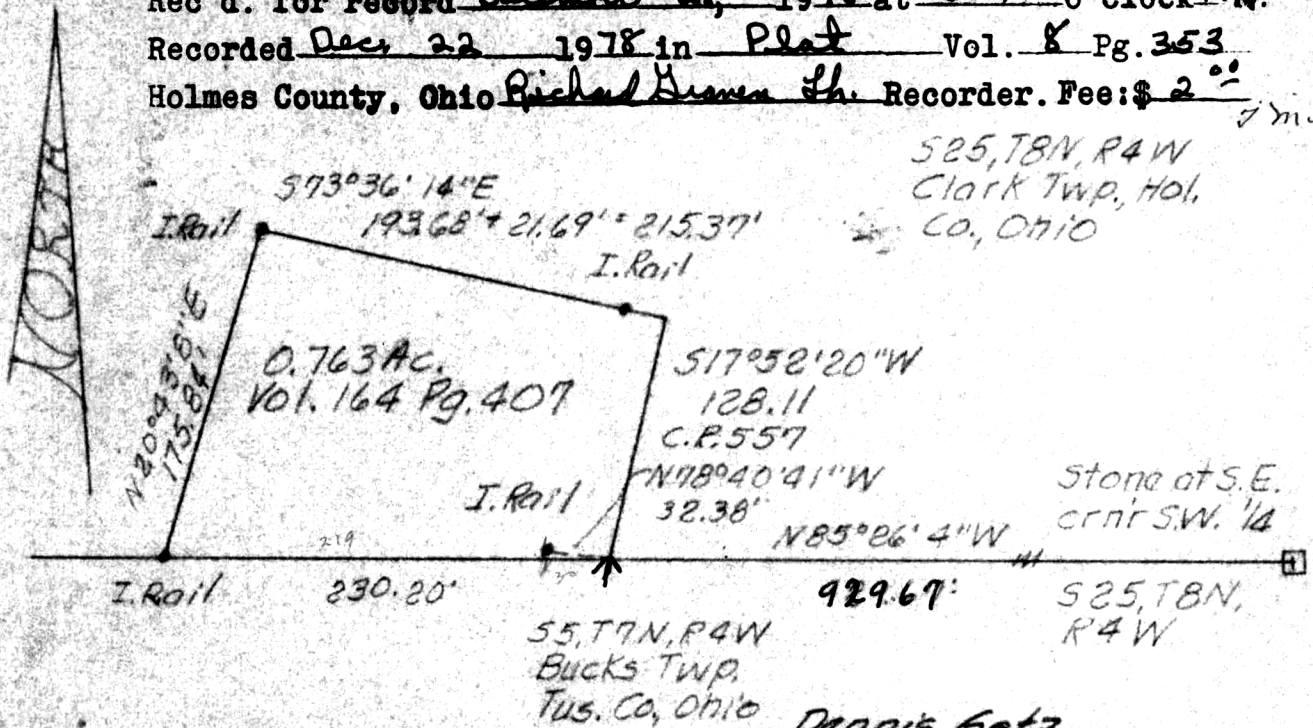 Rec'd. for record 19 at o'clock M.
Recorded Dec. 22 1978 in Plat Vol. 8 Pg. 353
Holmes County, Ohio Richard Graven Recorder. Fee:$ 2 00
NORTH
S25, T8N, R4W
Clark Twp., Hol.
Co., Ohio
S73°36'14"E
193.68' + 21.69' = 215.37'
I.Rail
I.Rail
N20°43'8"E
175.84'
0.763 Ac.
Vol. 164 Pg. 407
S17°52'20"W
128.11
C.R. 557
N78°40'41"W
32.38'
I.Rail
N85°26'4"W
Stone at S.E.
crn'r S.W. 1/4
219
I.Rail
230.20'
929.67'
S25, T8N,
R4W
S5, T7N, R4W
Bucks Twp.
Tus. Co, Ohio
Dennis Gotz